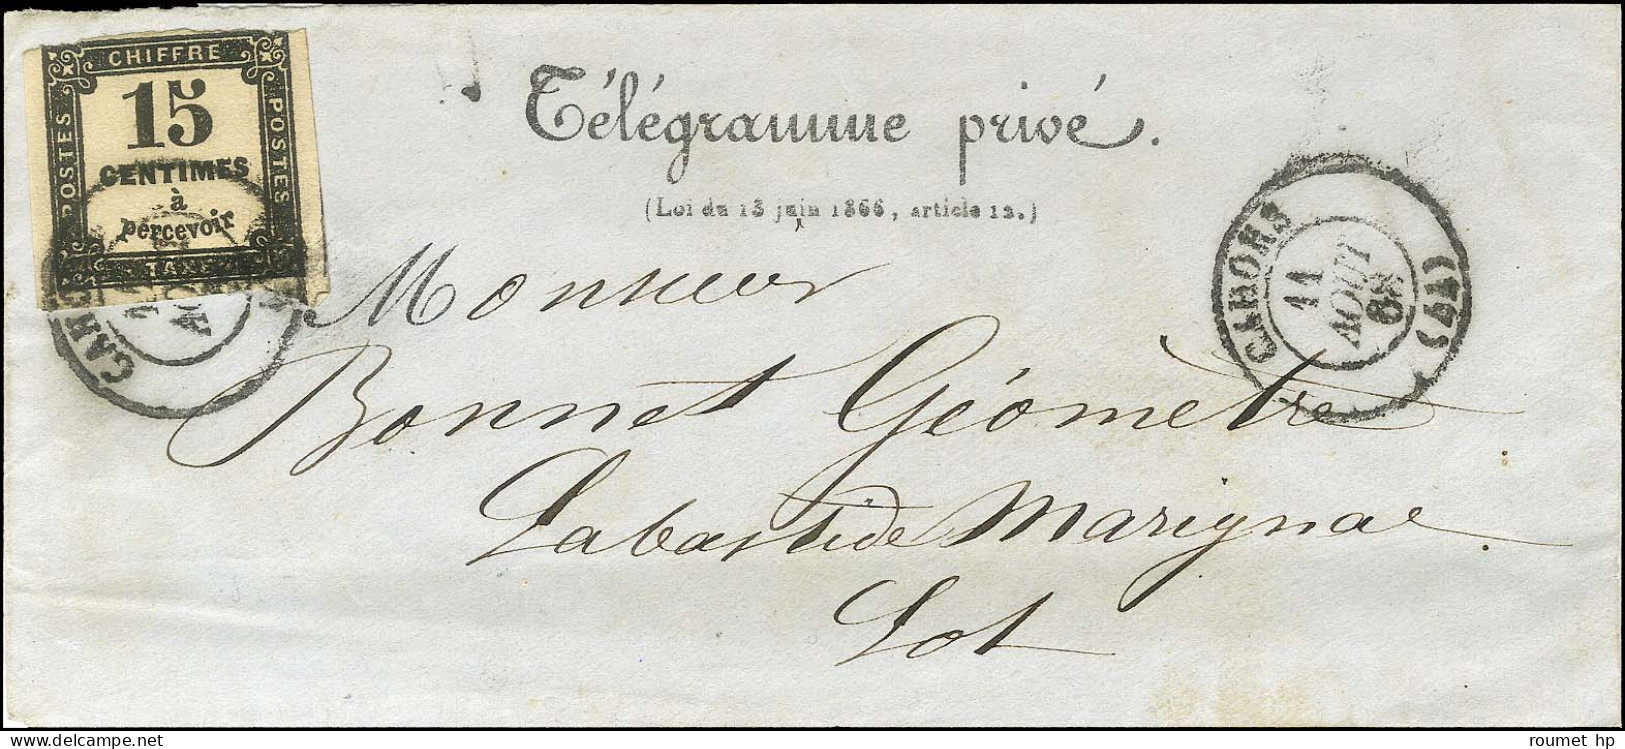 CHIFFRE
POSTES
15
CENTIMES
à
percevoir
POSTES
TAXE
Télégramme privé.
(Loi du 13 juin 1866, article 13.)
CAHORS (44)
11
AOUT
68
Monsieur
Bonnet Géomètre
Labastide Marignac
Lot
roumet hp